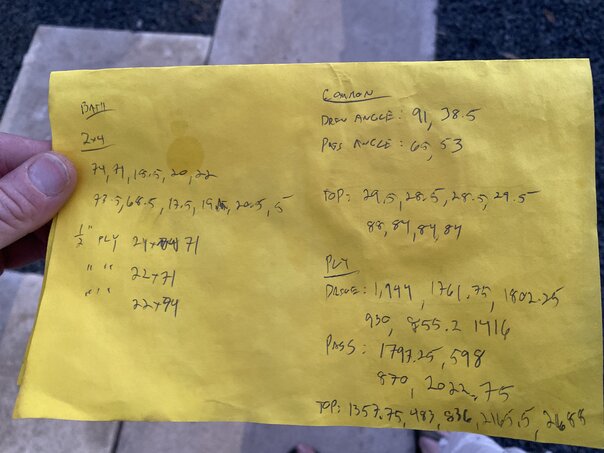 BATH
2x4
74, 71, 18.5, 20, 22
73.5, 68.5, 17.5, 20.5, 5
1/2" PLY 24x 71
" " 22x71
" " 22x94
COMMON
DRIV ANGLE: 91, 38.5
PASS ANGLE: 65, 53
TOP: 29.5, 28.5, 28.5, 29.5
88, 84, 84, 84
PLY
DRIVE: 1,944, 1761.75, 1802.25
930, 855.2 1416
PASS: 1797.25, 598
870, 2022.75
TOP: 1357.75, 483, 836, 2165.5, 2688